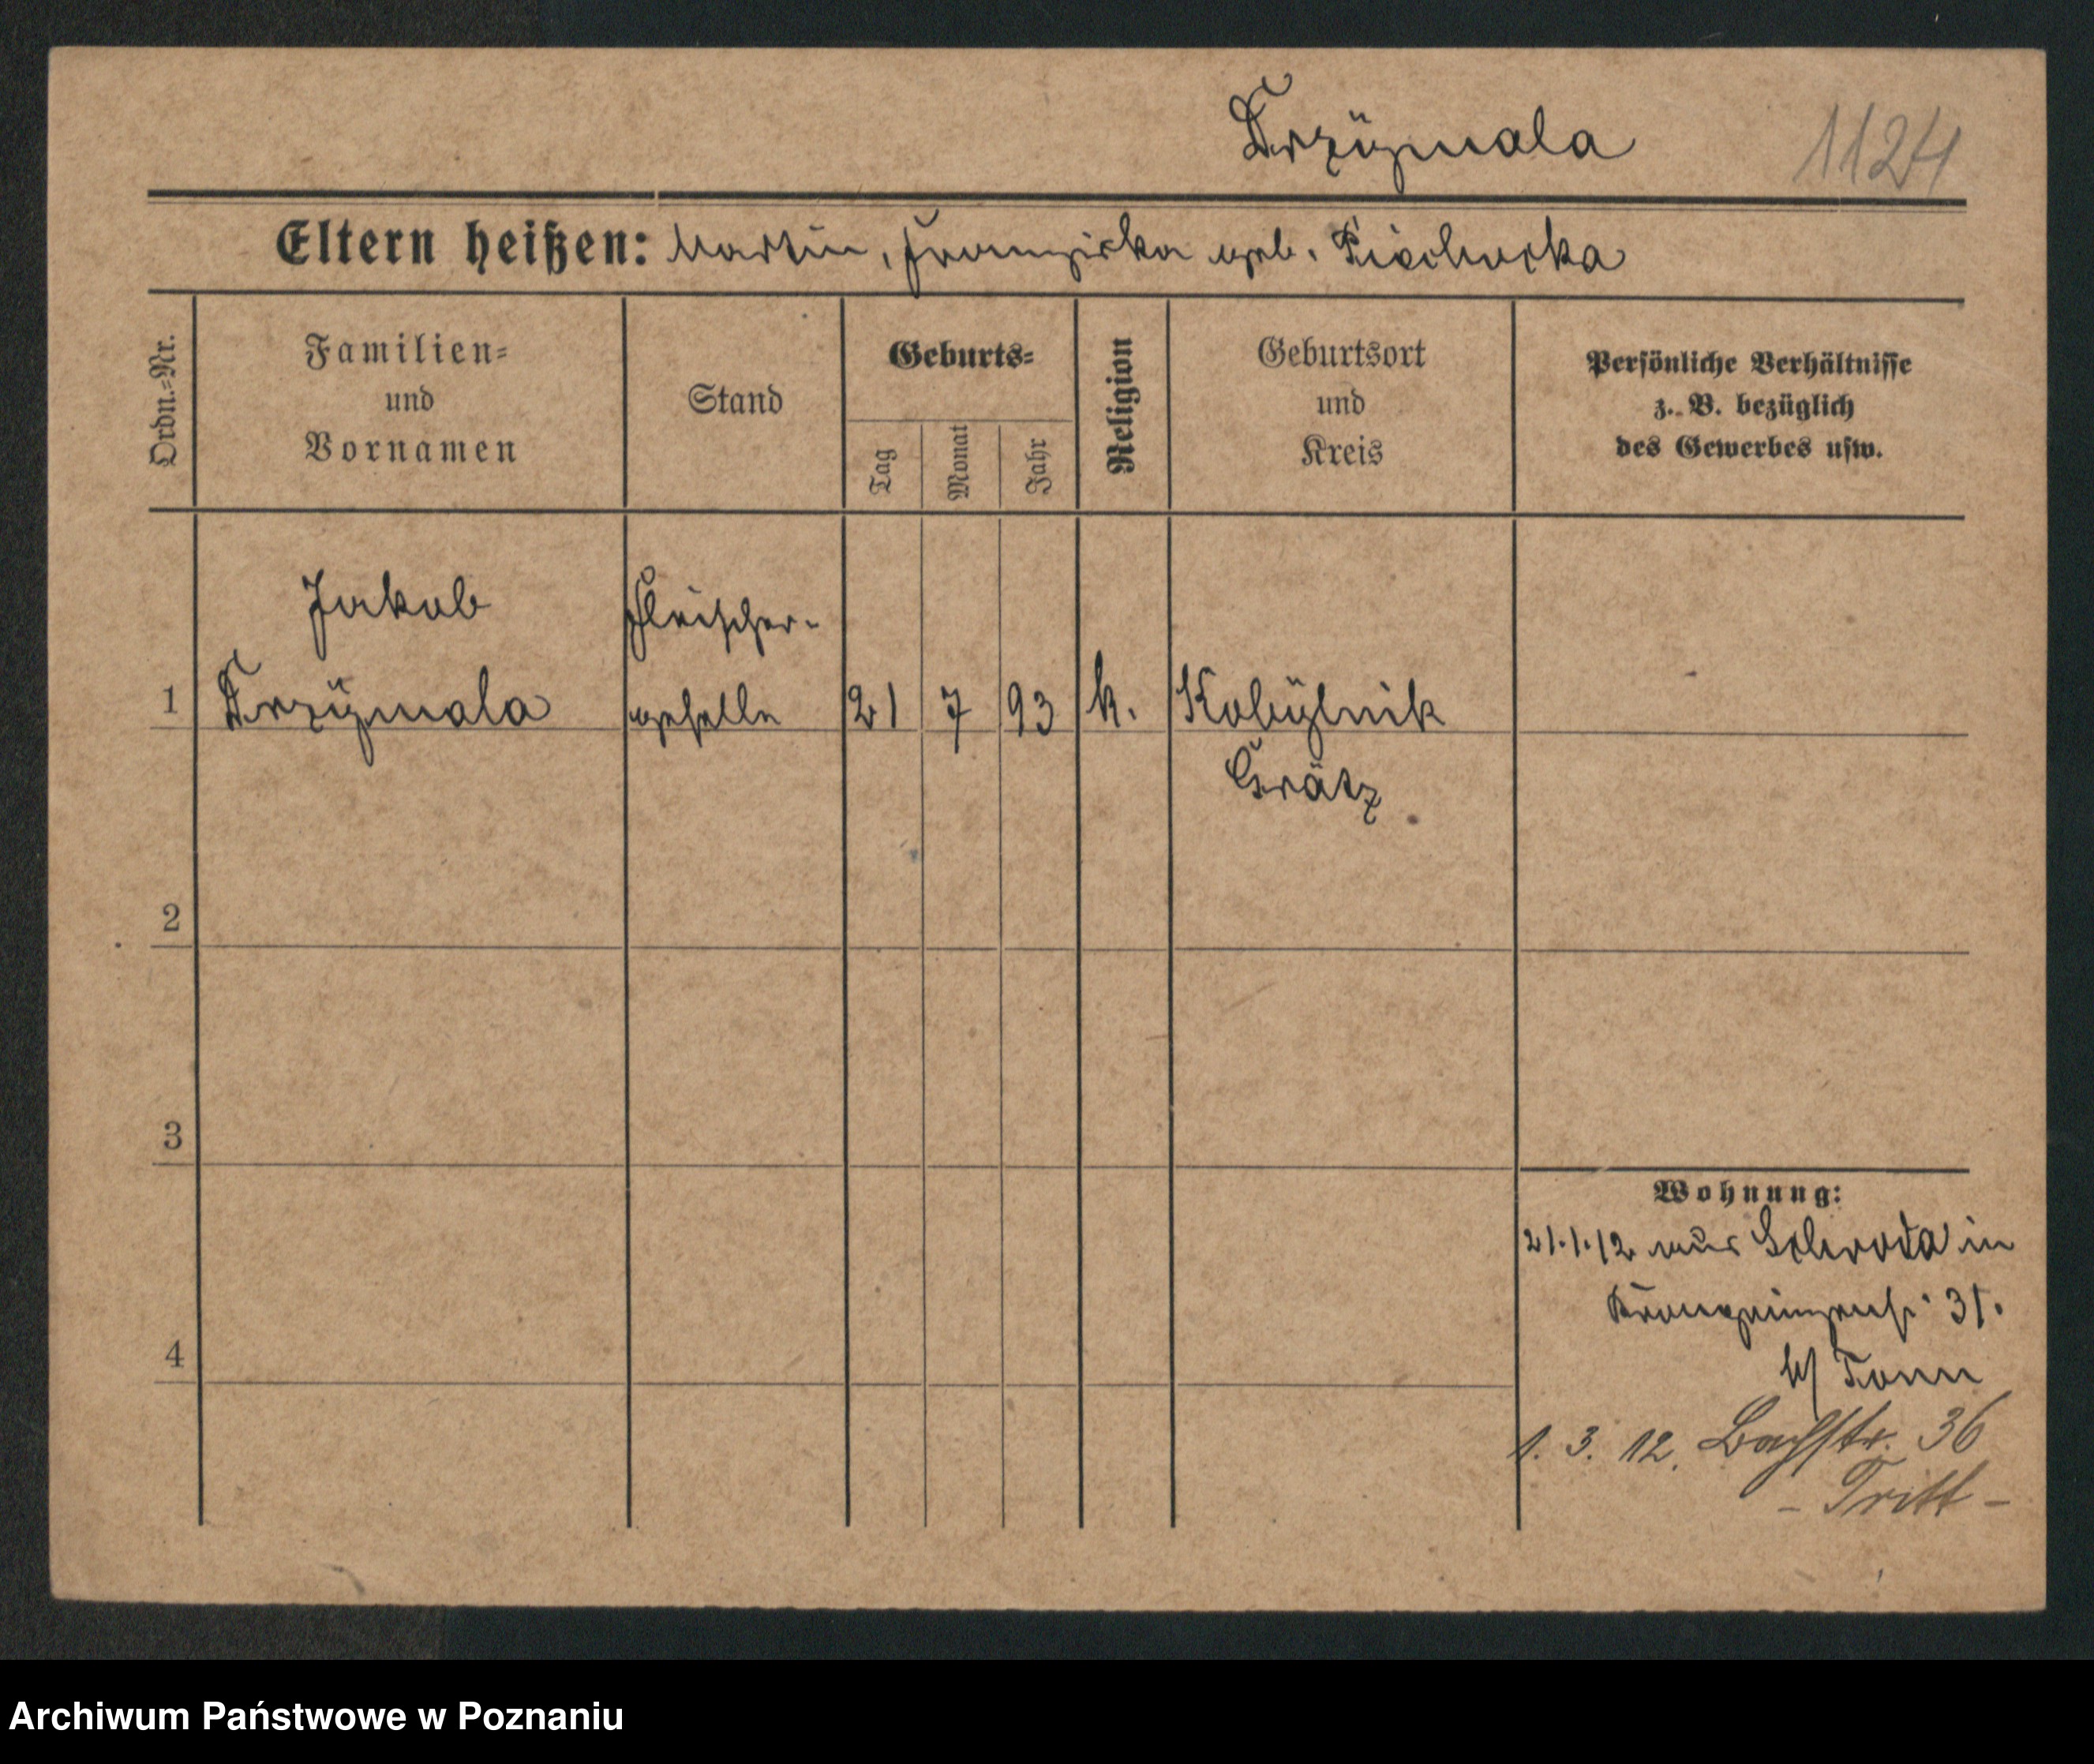 Drzÿmala 1124
Eltern heißen: Martin, Franziska geb.
Ordn.-Nr.
Familien-
und
Vornamen
Stand
Geburts-
Tag
Monat
Jahr
Religion
Geburtsort
und
Kreis
Persönliche Verhältnisse
z. B. bezüglich
des Gewerbes usw.
Jakob Fleischer-
1 Drzÿmala geselle 21 7 93 k. Kobÿlnik
Grätz
2
3
4
Wohnung:
21.1.12 aus Schroda in
Kronprinzenstr. 31.
b/ Tonn
1. 3. 12. Bachstr. 36
- Tritt -
Archiwum Państwowe w Poznaniu